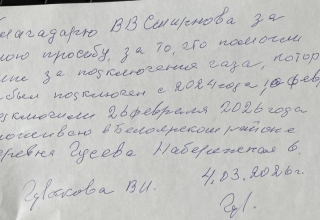 благадарю ВВ Смирнова за
мою прозьбу, за то, что помогли
мне за подключения газа, котор
был подключен с 2024 года, февр
подключили 26 февраля 2026 года
проживаю в Белоярском районе
деревня Гусева Набережная 6
4.03.2026г.
Гусакова В.И. Гус.